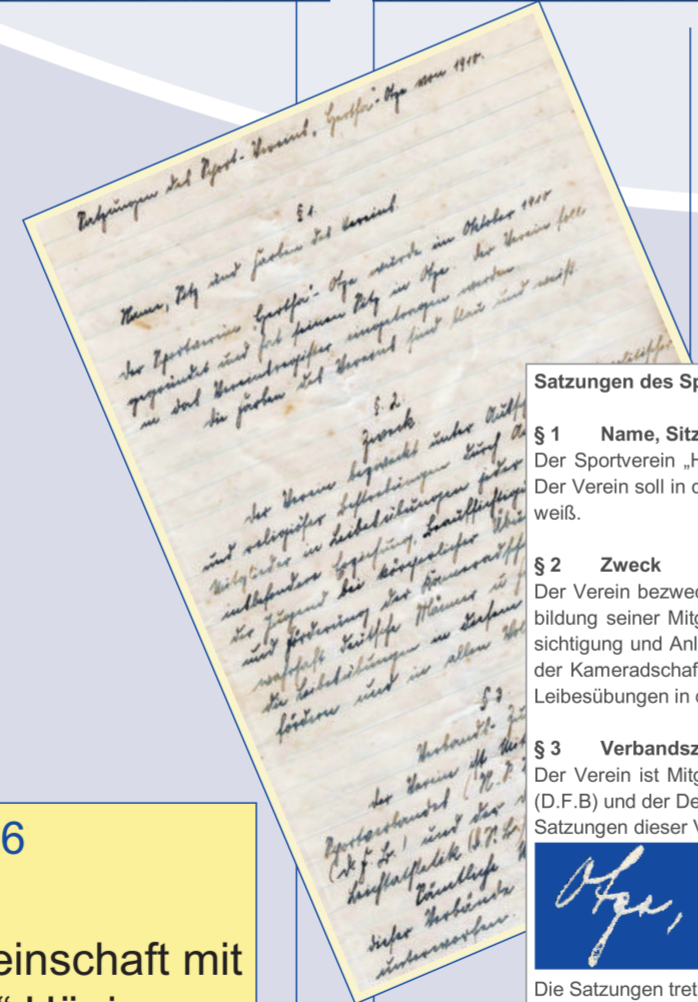 Satzungen des Sport-Vereins „Hertha“-Otze von 1910.
§ 1.
Name, Sitz und Farben des Vereins.
Der Sportverein „Hertha“-Otze wurde im Oktober 1910
gegründet und hat seinen Sitz in Otze. Der Verein soll
in das Vereinsregister eingetragen werden.
Die Farben des Vereins sind blau und weiß.
§. 2.
Zweck
Der Verein bezweckt unter
politischer
und religiöser Bestrebungen durch
Mitglieder in Leibesübungen jeder
insbesondere Erziehung, Beaufsichtigung
der Jugend bei körperlicher
und Förderung der Kameradschaft
wahrhaft deutsche Männer u
die Leibesübungen in diesem
fördern und in allen
§ 3
Verbands-
Der Verein ist
Sportverbandes
(D. F. B.) und der
Leichtathletik
Sämtliche
dieser Verbände
unterworfen.
Satzungen des Sp
§ 1 Name, Sitz
Der Sportverein „H
Der Verein soll in d
weiß.
§ 2 Zweck
Der Verein bezwec
bildung seiner Mitg
sichtigung und Anl
der Kameradschaf
Leibesübungen in d
§ 3 Verbandsz
Der Verein ist Mitg
(D.F.B) und der De
Satzungen dieser V
Otze,
Die Satzungen tret
6
einschaft mit